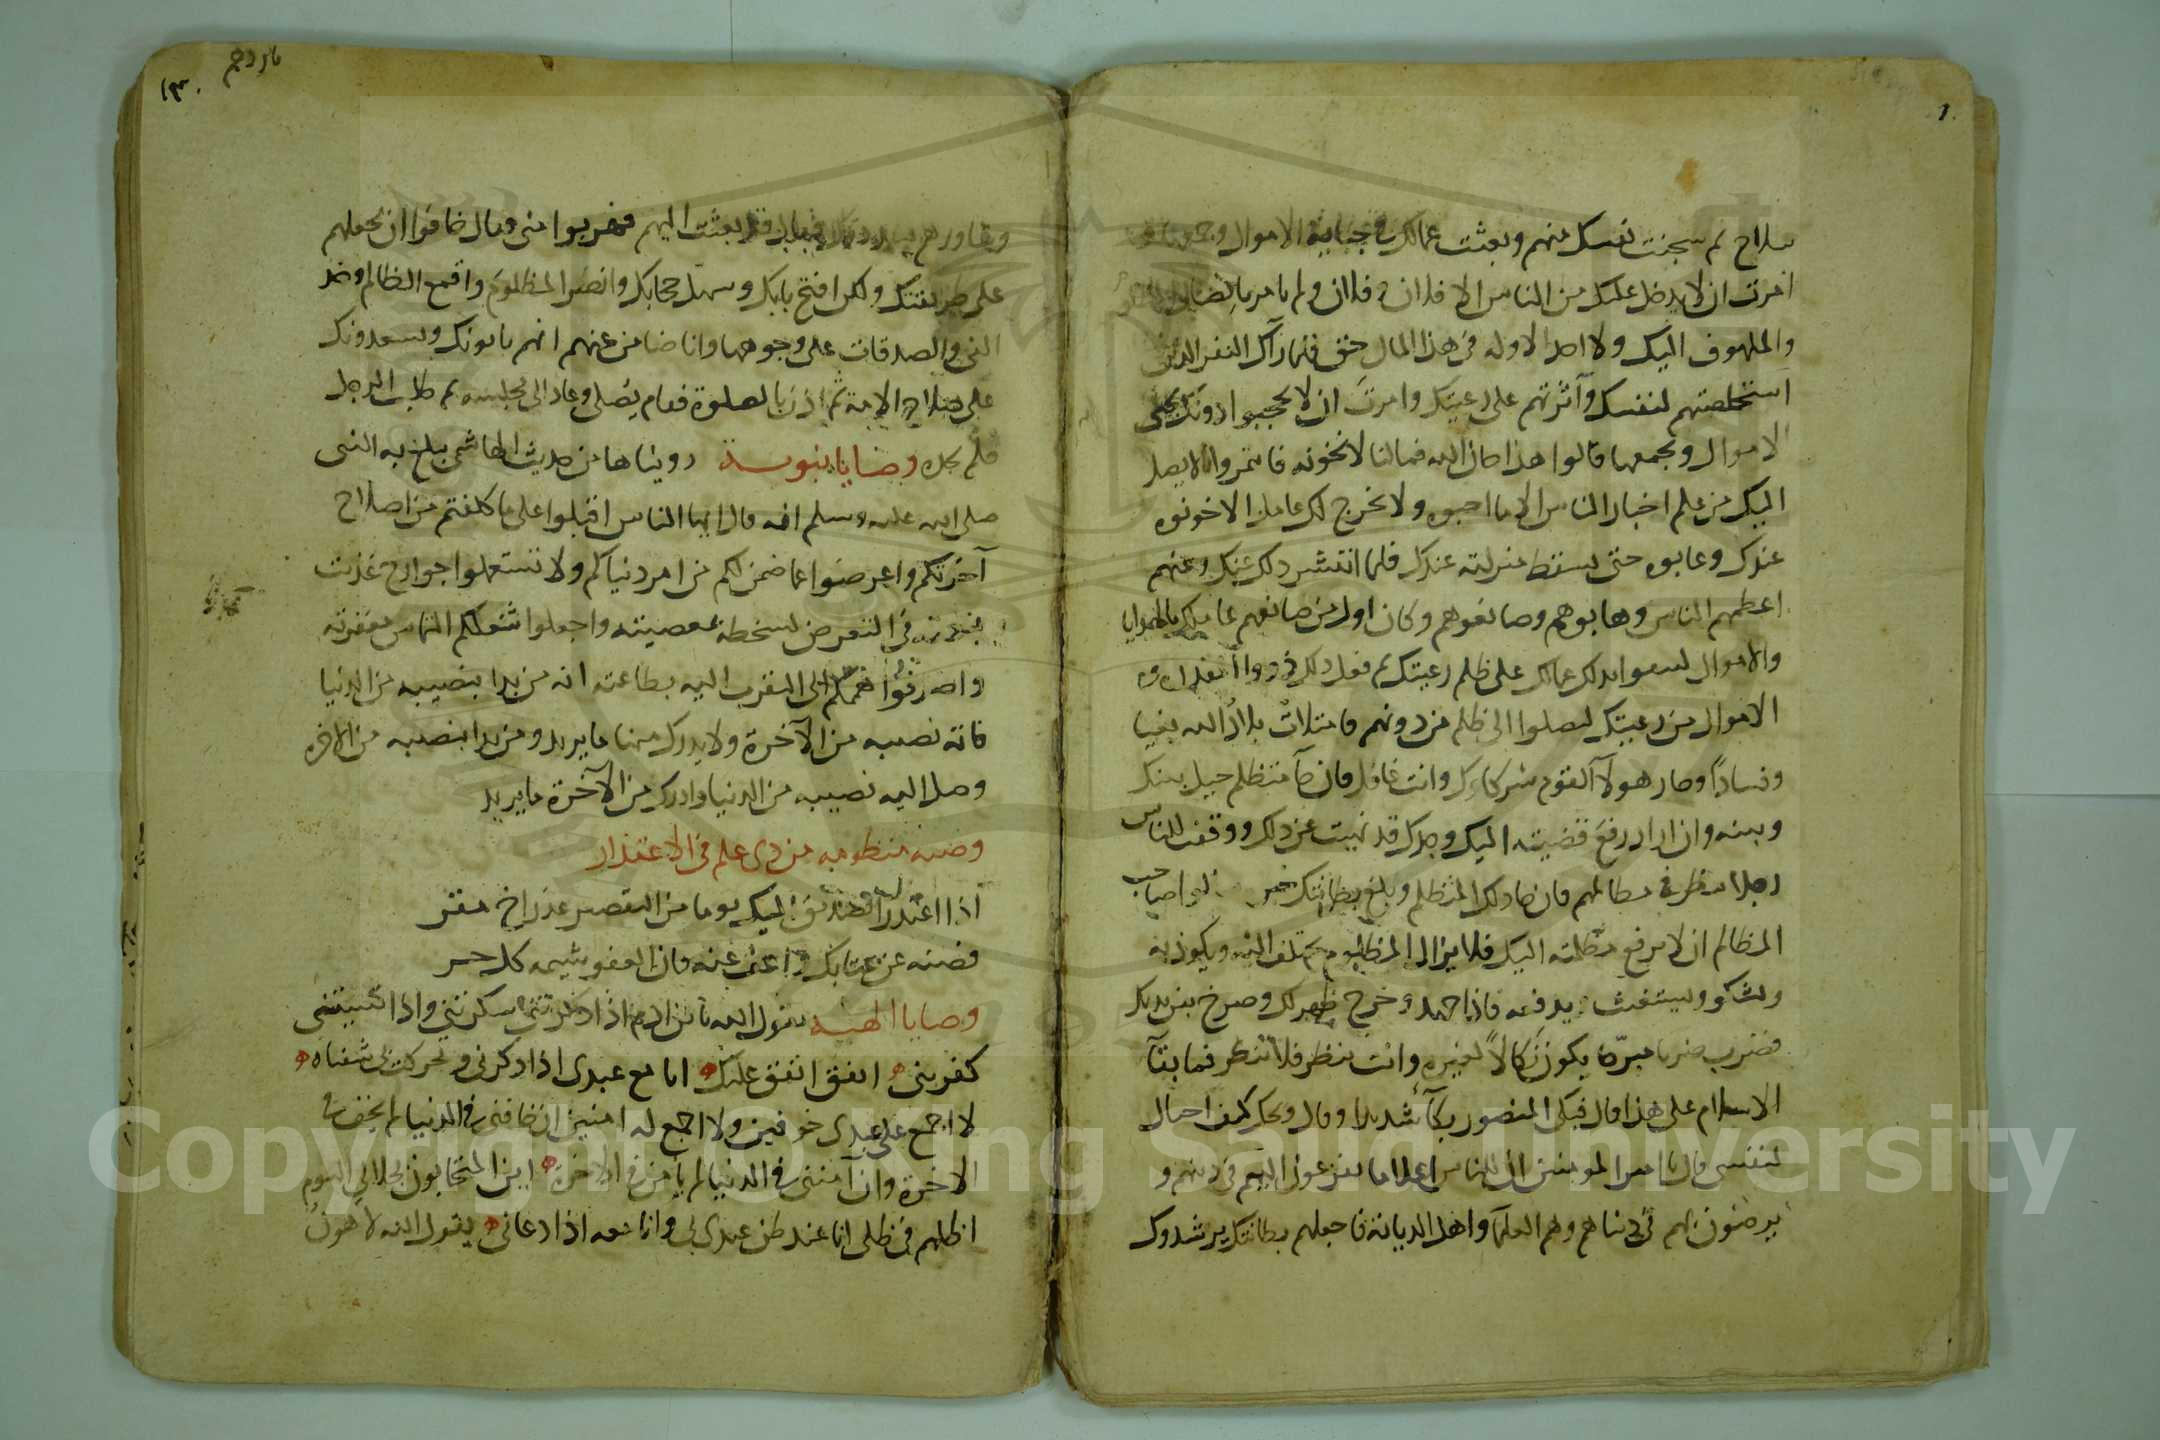 سلاح ثم سجنت نفسك منهم وبعثت عمالك في جباية الاموال وجمعها
امرت ان لا يدخل عليك من الناس الا فلان وفلان ولم يأمر بايصال
والملهوف اليك ولا احد الا وله في هذا المال حق فلما رآك النفر الذين
استخلصتهم لنفسك وآثرتهم على رعيتك وامرت ان لا يحجبوا دونك تجبى
الاموال وتجمعها قالوا هذا خان الله فمالنا لا نخونه فائتمروا ان لا يصل
اليك من علم اخبار الناس الا ما احبوه ولا يخرج لك عامل الا خونوه
عندك وعابوه حتى يسقط منزلته عندك فلما انتشر ذلك عنك وعنهم
اعظمهم الناس وهابوهم وصانعوهم وكان اول من صانعهم عمالك بالهدايا
والاموال ليقووا بذلك عمالك على ظلم رعيتك ثم فعل ذلك ذووا
الاموال من رعيتك ليصلوا الى ظلم من دونهم فامتلأت بلاد الله بغيا
وفسادا وصار هولآء القوم شركاءك وانت غافل فان جآ متظلم حيل بينك
وبينه وان اراد رفع قضيته اليك وجدك قد نهيت عن ذلك ووقفت للناس
رجلا ينظر في مظالمهم فان جاء ذلك المتظلم وبلغ بطانتك خبره صاحب
المظالم ان لا يرفع مظلمته اليك فلا يزال المظلوم يختلف اليه ويلوذ به
ويشكو ويستغيث يدفعه فاذا جهد وخرج ظهرت لك وصرخ بين يديك
فضرب ضربا مبرحا يكون نكالا لغيره وانت تنظر فلا تنكر فما بقآ
الاسلام على هذا قال فبكى المنصور بكآء شديدا وقال ويحك كيف احتال
لنفسي قال يا امير المومنين ان للناس اعلاما يفزعون اليهم في دينهم و
يرضون بهم في دنياهم وهم العلمآ واهل الديانة فاجعلهم بطانتك يرشدوك
وشاورهم يسددوك قال قد بعثت اليهم فهربوا مني وقال خافوا ان تحملهم
على طريقتك ولكن افتح بابك وسهل حجابك وانصر المظلوم واقمع الظالم وخذ
الفئ والصدقات على وجوهها وانا ضامن عنهم انهم ياتونك ويسعدونك
على صلاح الامة ثم اذن بالصلوة فقام يصلى وعاد الى مجلسه ثم طلب الرجل
فلم يجده وصايا نبوية روينا ها من حديث الهاشمى يبلغ به النبى
صلى الله عليه وسلم انه قال ايها الناس اقبلوا على ما كلفتم من اصلاح
آخرتكم واعرضوا عما ضمن لكم من امر دنياكم ولا تستعملوا جوارح غذيت
بنعمته في التعرض لسخطه بمعصيته واجعلوا شغلكم التماس مغفرته
واصرفوا هممكم الى التقرب اليه بطاعته انه من بدا بنصيبه من الدنيا
فاته نصيبه من الآخرة ولا يدرك منها ما يريد ومن بدا بنصيبه من الاخرة
وصل اليه نصيبه من الدنيا وادرك من الآخرة ما يريد
وصية منظومة من ذى علم في الاعتذار
اذا اعتذر الصديق اليك يوما من التقصير عذر اخ مقر
فصنه عن عتابك واعف عنه فان العفو شيمة كل حر
وصايا الهية يقول الله يا بن ادم اذا ذكرتنى شكرتنى واذا نسيتنى
كفرتنى انفق انفق عليك انا مع عبدى اذا ذكرنى وتحركت بى شفتاه
لا اجمع على عبدى خوفين ولا اجمع له امنين ان خافنى في الدنيا لم يخف في
الاخرة وان امننى في الدنيا لم يأمن في الاخرة اين المتحابون بجلالى اليوم
اظلهم في ظلى انا عند ظن عبدى بى وانا معه اذا دعانى يقول الله لاهون
Copyright © King Saud University